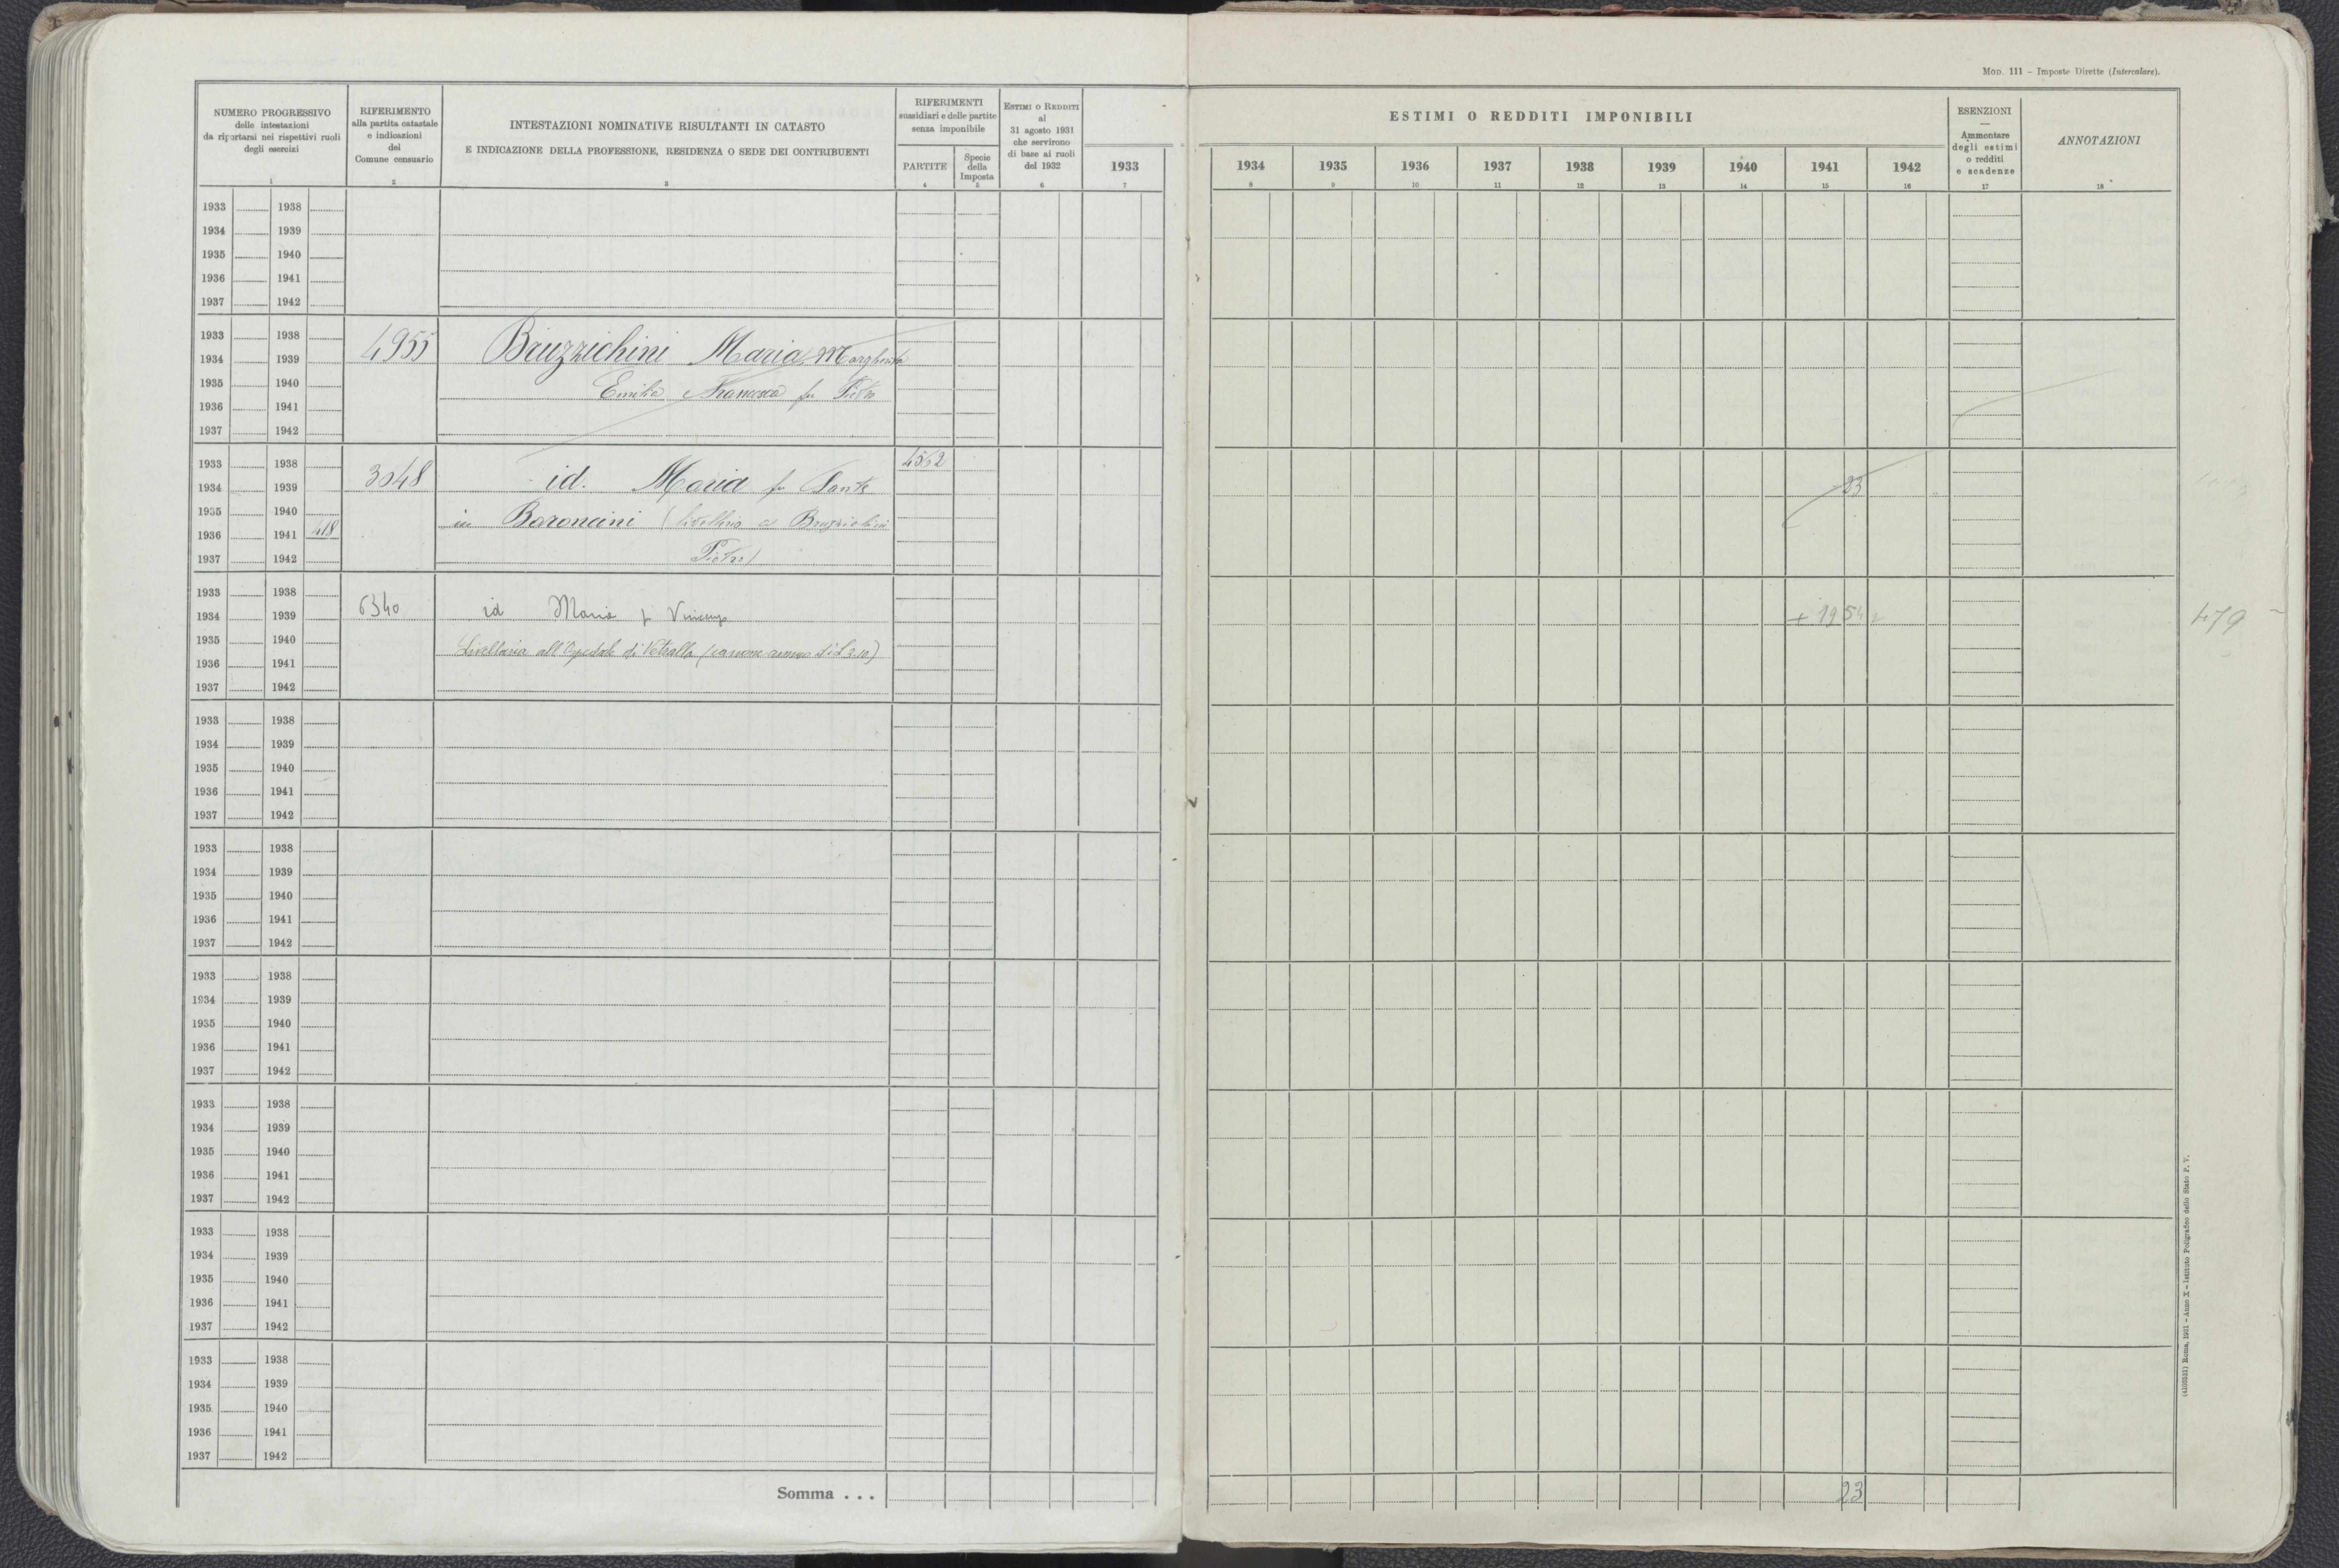 MOD. 111 – Imposte Dirette (Intercalare).
NUMERO PROGRESSIVO
delle intestazioni
da riportarsi nei rispettivi ruoli
degli esercizi
1
RIFERIMENTO
alla partita catastale
e indicazioni
del
Comune censuario
2
INTESTAZIONI NOMINATIVE RISULTANTI IN CATASTO
E INDICAZIONE DELLA PROFESSIONE, RESIDENZA O SEDE DEI CONTRIBUENTI
3
RIFERIMENTI
sussidiari e delle partite
senza imponibile
PARTITE
4
Specie
della
Imposta
5
ESTIMI O REDDITI
al
31 agosto 1931
che servirono
di base ai ruoli
del 1932
6
1933
7
ESTIMI O REDDITI IMPONIBILI
1934 1935 1936 1937 1938 1939 1940 1941 1942
8 9 10 11 12 13 14 15 16
ESENZIONI
—
Ammontare
degli estimi
o redditi
e scadenze
17
ANNOTAZIONI
18
1933 1938
1934 1939
1935 1940
1936 1941
1937 1942
1933 1938
4955 Bruzzichini Maria Margherita
1934 1939
Emilia Francesca fu Pietro
1935 1940
1936 1941
1937 1942
1933 1938 4562
3048 id. Maria fu Sante 23
1934 1939
1935 1940
in Baroncini (livellaria a Bruzzichini
1936 1941 418
Pietro)
1937 1942
1933 1938
6340 id Maria fu Vincenzo + 1954 479
1934 1939
1935 1940
Livellaria all'Ospedale di Vetralla (canone annuo di L 3.10)
1936 1941
1937 1942
1933 1938
1934 1939
1935 1940
1936 1941
1937 1942
1933 1938
1934 1939
1935 1940
1936 1941
1937 1942
1933 1938
1934 1939
1935 1940
1936 1941
1937 1942
1933 1938
1934 1939
1935 1940
1936 1941
1937 1942
1933 1938
1934 1939
1935 1940
1936 1941
1937 1942
1933 1938
1934 1939
1935 1940
1936 1941
1937 1942
Somma . . . 23
Roma, 1931 – Anno X – Istituto Poligrafico dello Stato P. V.